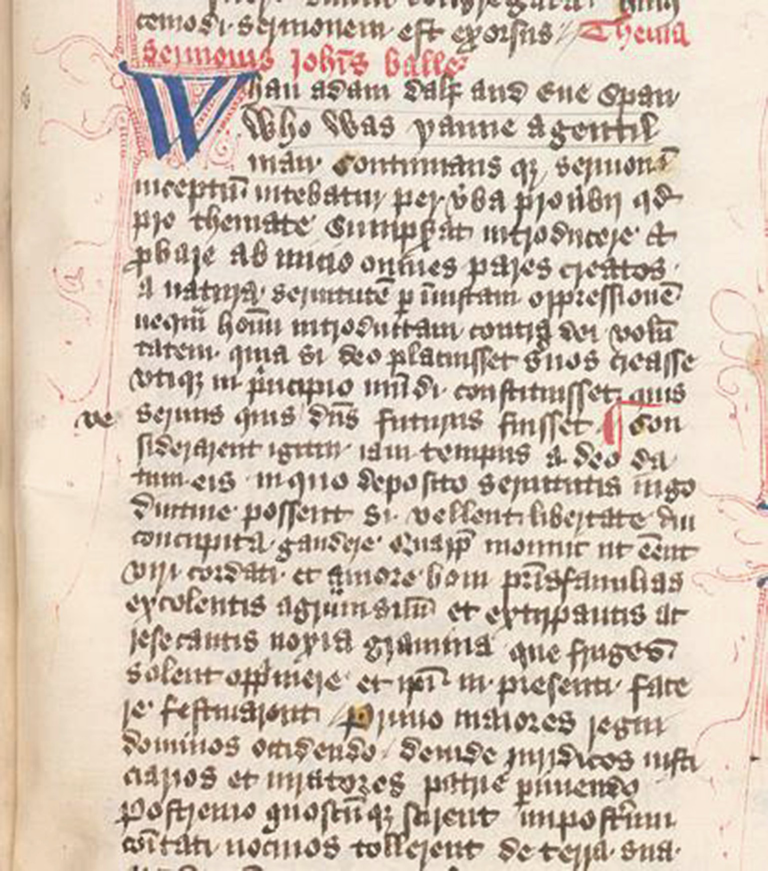 cemodi sermonem est exorsus Thema
sermonis Joħis balle
Whan adam dalf and Eue Span
Who was þanne a gentil
man Continuans qȝ sermonē
inceptū nitebatur per v̄ba prou̅bii qd̄
pro themate Sumpserat introducere et
p̄bare ab inicio omnes pares creatos
a natura seruitutē per iniustam oppressionē
nequā hoīm introductam contra dei volū
tatem quia si deo placuisset Suos creasse
Vtiqȝ in p̄ncipio mūdi constituisset quis
seruus quis dn̄s futurus fuisset Con
ve
siderarent igitur iam tempus a deo da
tum eis in quo deposito seruitutis iugo
diutine possent si vellent libertate diu
concupita gaudere Quapp̄ monuit ut eēnt
viri cordati et amore boni pr̄isfamilias
excolentis agrum suū et extirpantis ac
resecantis noxia gramina que fruges
solent opp̄mere et ip̄i in presenti face
re festinarent Primo maiores regni
dominos occidendo deinde iuridicos iusti
ciarios et iuratores patrie perimendo
Postremo quoscūqȝ scirent in posterum
cōitati nociuos tollerent de terra sua